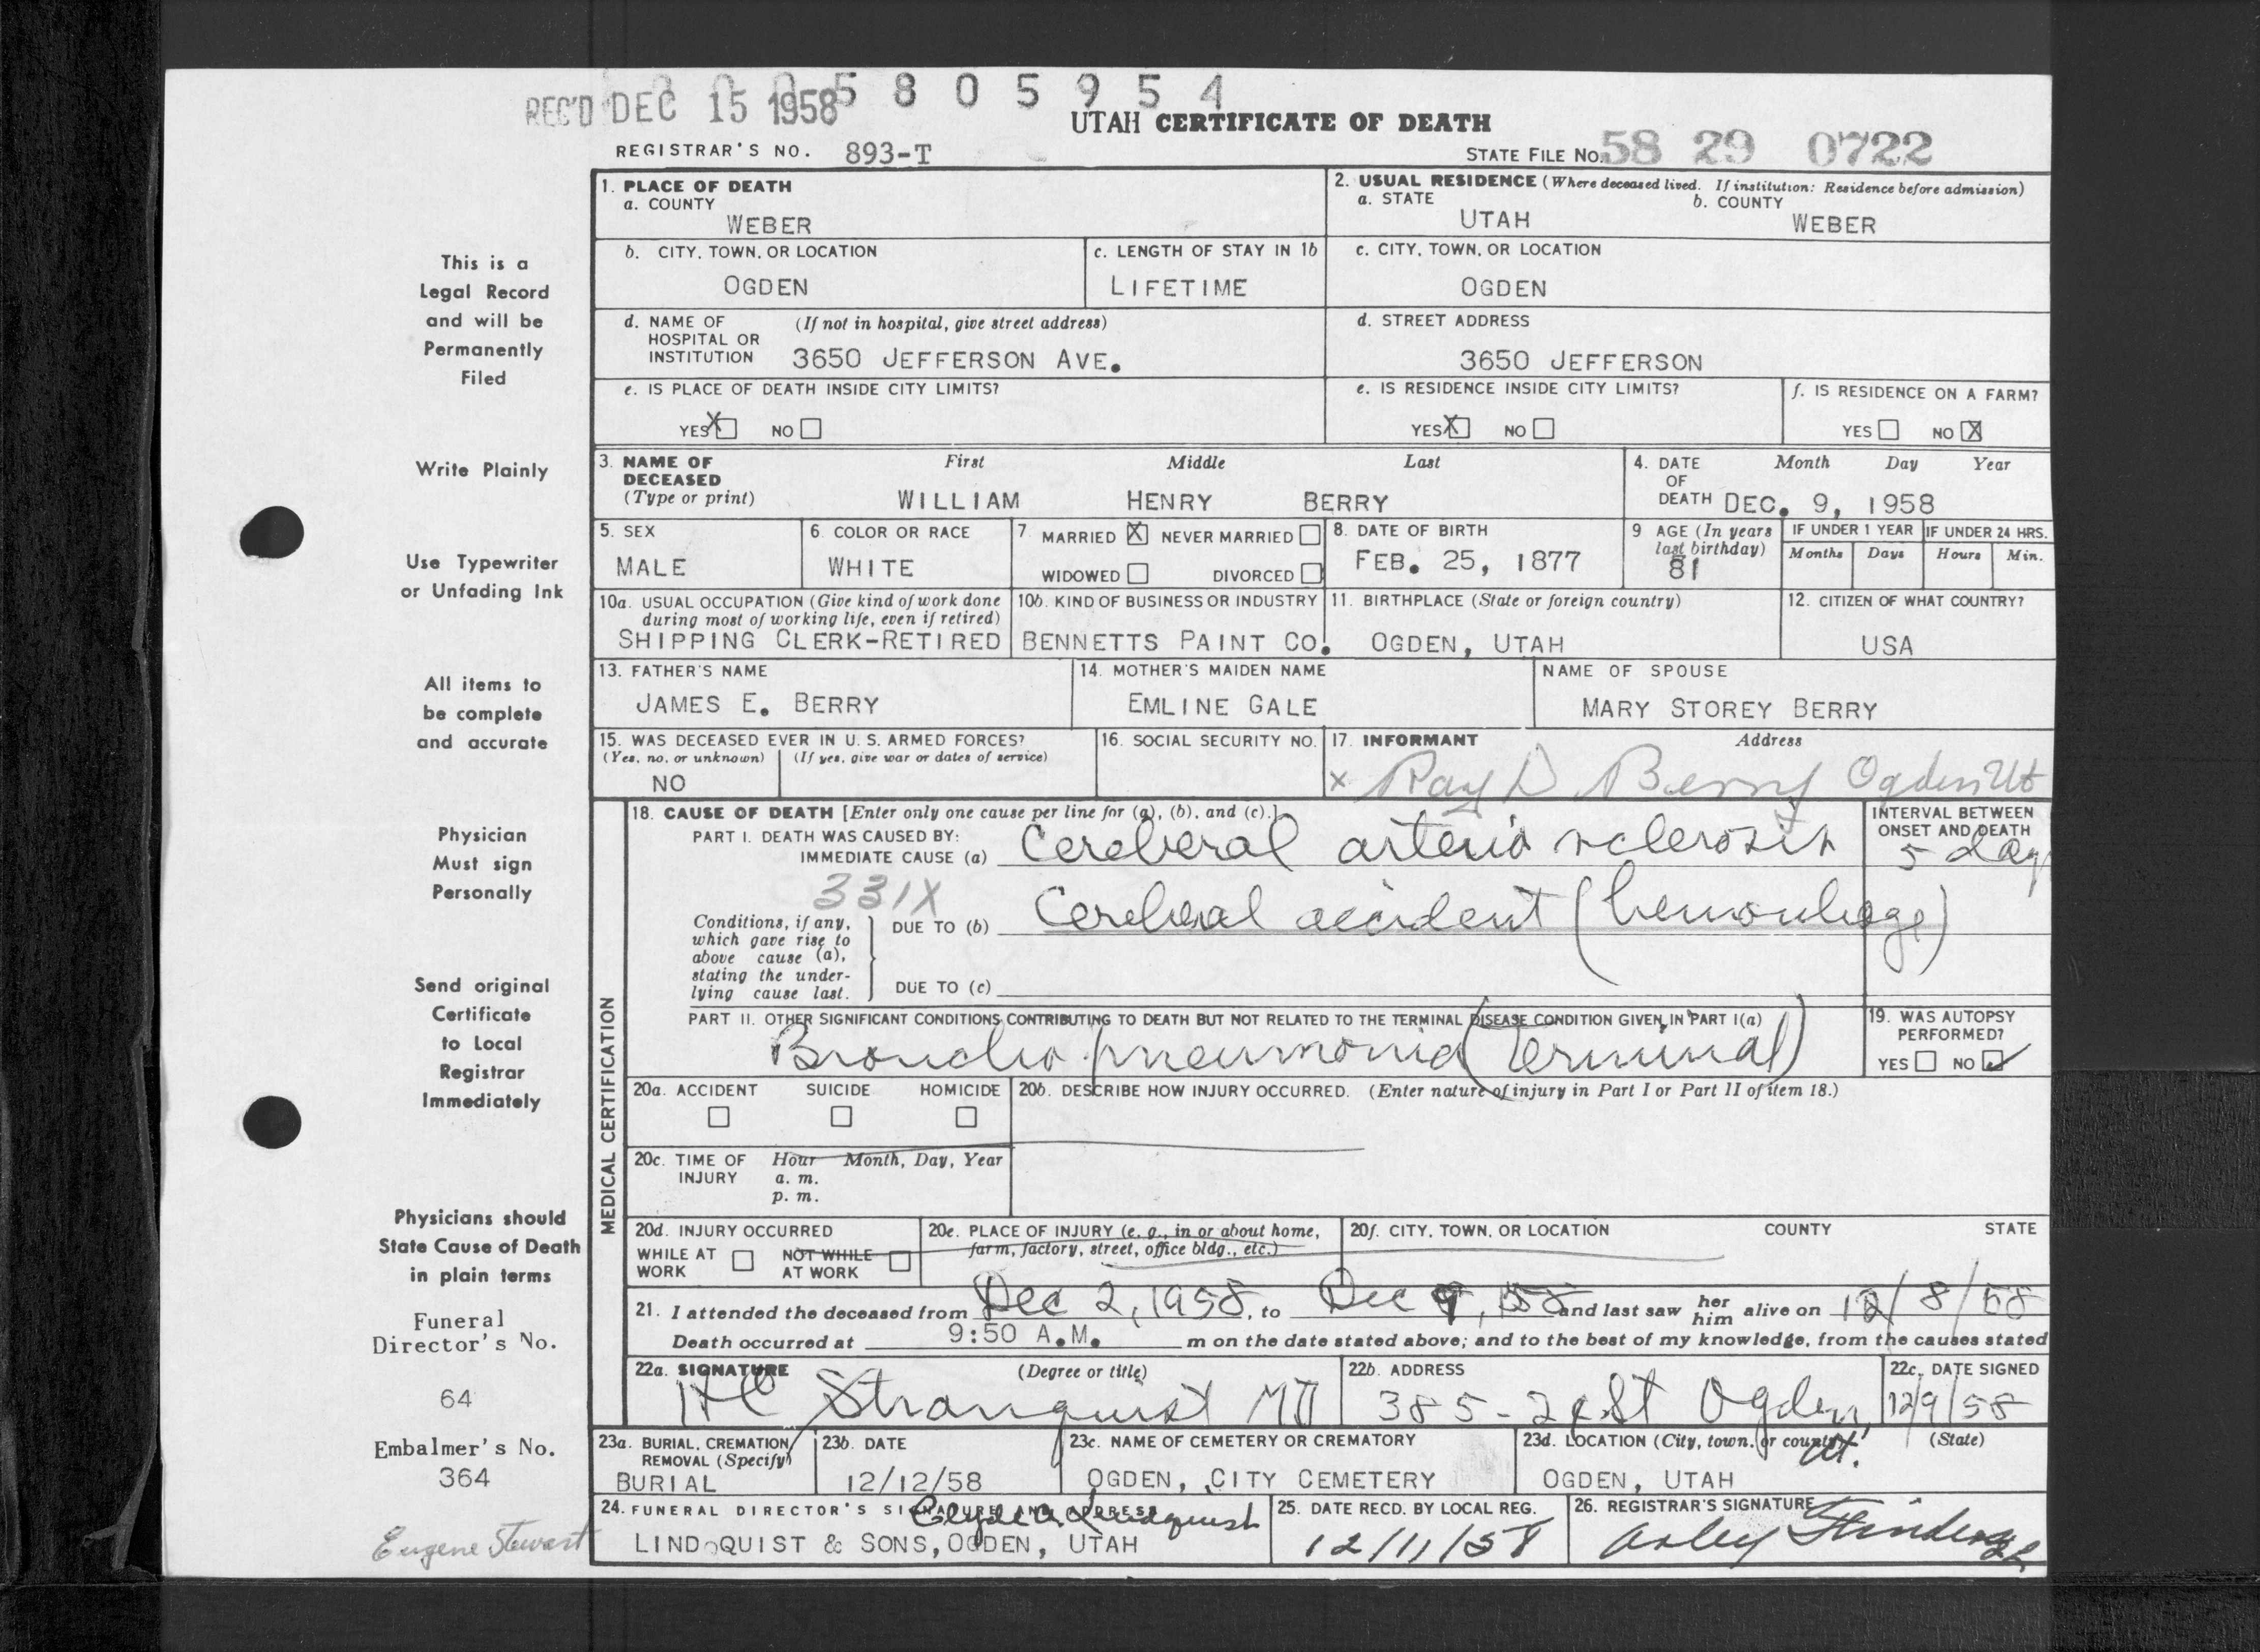 5 8 0 5 9 5 4
REC'D DEC 15 1958
UTAH CERTIFICATE OF DEATH
REGISTRAR'S NO. 893-T
STATE FILE NO. 58 29 0722
This is a
Legal Record
and will be
Permanently
Filed
Write Plainly
Use Typewriter
or Unfading Ink
All items to
be complete
and accurate
Physician
Must sign
Personally
Send original
Certificate
to Local
Registrar
Immediately
Physicians should
State Cause of Death
in plain terms
Funeral
Director's No.
64
Embalmer's No.
364
Eugene Stewart
1. PLACE OF DEATH
a. COUNTY
WEBER
2. USUAL RESIDENCE (Where deceased lived. If institution: Residence before admission)
a. STATE b. COUNTY
UTAH WEBER
b. CITY, TOWN, OR LOCATION
OGDEN
c. LENGTH OF STAY IN 1b
LIFETIME
c. CITY, TOWN, OR LOCATION
OGDEN
d. NAME OF (If not in hospital, give street address)
HOSPITAL OR
INSTITUTION 3650 JEFFERSON AVE.
d. STREET ADDRESS
3650 JEFFERSON
e. IS PLACE OF DEATH INSIDE CITY LIMITS?
YES X NO
e. IS RESIDENCE INSIDE CITY LIMITS?
YES X NO
f. IS RESIDENCE ON A FARM?
YES NO X
3. NAME OF First Middle Last
DECEASED
(Type or print) WILLIAM HENRY BERRY
4. DATE Month Day Year
OF
DEATH DEC. 9, 1958
5. SEX
MALE
6. COLOR OR RACE
WHITE
7. MARRIED X NEVER MARRIED
WIDOWED DIVORCED
8. DATE OF BIRTH
FEB. 25, 1877
9 AGE (In years
last birthday)
81
IF UNDER 1 YEAR IF UNDER 24 HRS.
Months Days Hours Min.
10a. USUAL OCCUPATION (Give kind of work done
during most of working life, even if retired)
SHIPPING CLERK-RETIRED
10b. KIND OF BUSINESS OR INDUSTRY
BENNETTS PAINT CO.
11. BIRTHPLACE (State or foreign country)
OGDEN, UTAH
12. CITIZEN OF WHAT COUNTRY?
USA
13. FATHER'S NAME
JAMES E. BERRY
14. MOTHER'S MAIDEN NAME
EMLINE GALE
NAME OF SPOUSE
MARY STOREY BERRY
15. WAS DECEASED EVER IN U. S. ARMED FORCES?
(Yes, no, or unknown) (If yes, give war or dates of service)
NO
16. SOCIAL SECURITY NO.
17. INFORMANT Address
x Ray D Berry Ogden Ut
MEDICAL CERTIFICATION
18. CAUSE OF DEATH [Enter only one cause per line for (a), (b), and (c).]
PART I. DEATH WAS CAUSED BY:
IMMEDIATE CAUSE (a) Cerebral arterio sclerosis
INTERVAL BETWEEN
ONSET AND DEATH
5 day
331X
Conditions, if any,
which gave rise to
above cause (a),
stating the under-
lying cause last.
DUE TO (b) Cerebral accident (hemorrhage)
DUE TO (c)
PART II. OTHER SIGNIFICANT CONDITIONS CONTRIBUTING TO DEATH BUT NOT RELATED TO THE TERMINAL DISEASE CONDITION GIVEN IN PART I(a)
Broncho-pneumonia (terminal)
19. WAS AUTOPSY
PERFORMED?
YES NO ✓
20a. ACCIDENT SUICIDE HOMICIDE
20b. DESCRIBE HOW INJURY OCCURRED. (Enter nature of injury in Part I or Part II of item 18.)
20c. TIME OF Hour Month, Day, Year
INJURY a. m.
p. m.
20d. INJURY OCCURRED
WHILE AT NOT WHILE
WORK AT WORK
20e. PLACE OF INJURY (e. g., in or about home,
farm, factory, street, office bldg., etc.)
20f. CITY, TOWN, OR LOCATION COUNTY STATE
21. I attended the deceased from Dec 2, 1958, to Dec 9, 58 and last saw her him alive on 12/8/58
Death occurred at 9:50 A.M. m on the date stated above; and to the best of my knowledge, from the causes stated
22a. SIGNATURE (Degree or title)
HC Stranquist MD
22b. ADDRESS
385 - St Ogden, Ut.
22c. DATE SIGNED
12/9/58
23a. BURIAL, CREMATION,
REMOVAL (Specify)
BURIAL
23b. DATE
12/12/58
23c. NAME OF CEMETERY OR CREMATORY
OGDEN, CITY CEMETERY
23d. LOCATION (City, town, or county) (State)
OGDEN, UTAH
24. FUNERAL DIRECTOR'S SIGNATURE AND ADDRESS
Clyde A. Lindquist
LINDQUIST & SONS, OGDEN, UTAH
25. DATE RECD. BY LOCAL REG.
12/11/58
26. REGISTRAR'S SIGNATURE